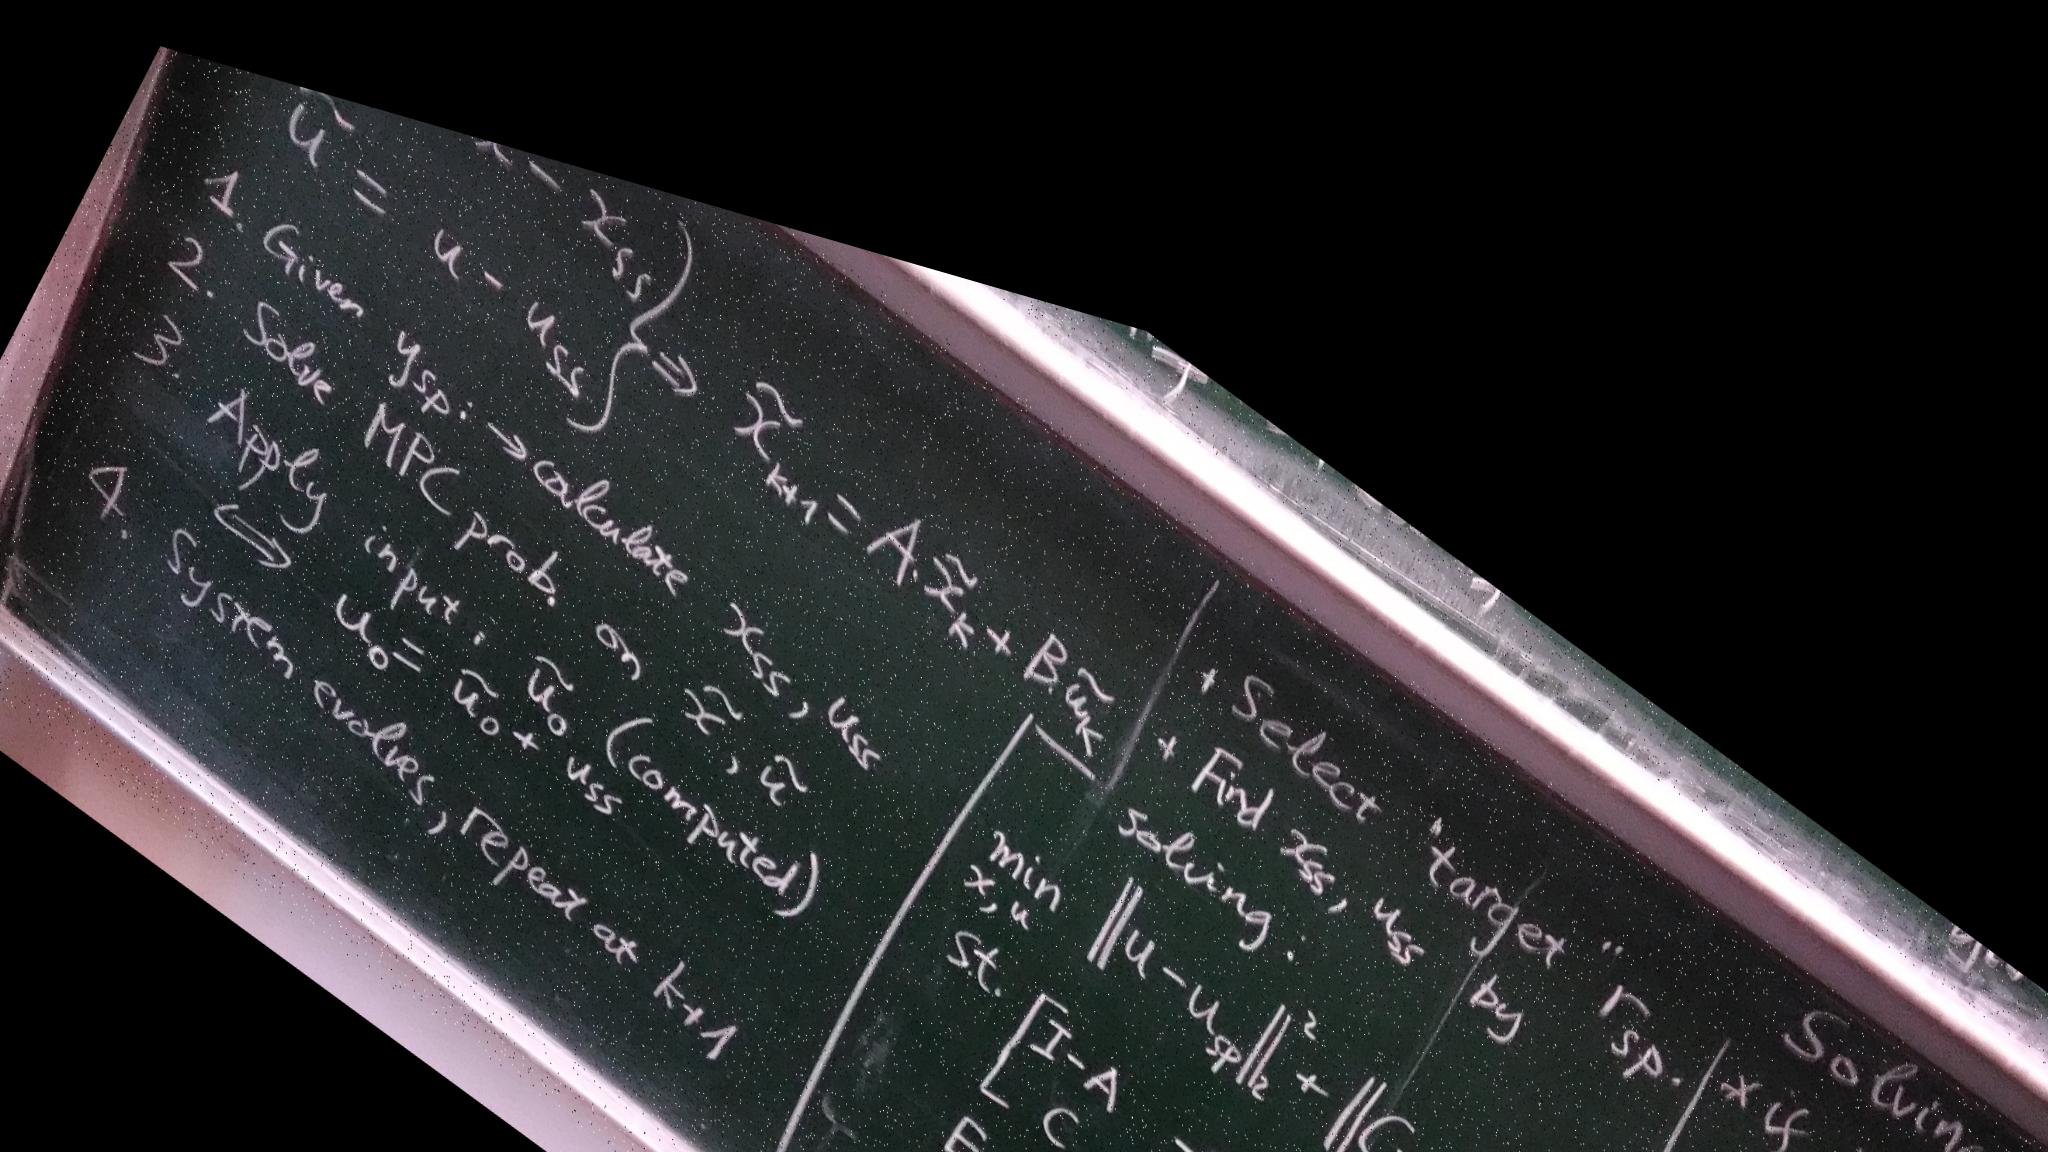 x - x_ss
ũ = u - u_ss } ⇒ x̃_{k+1} = A.x̃_k + B.ũ_k
1. Given y_sp. → calculate x_ss, u_ss
2. Solve MPC prob. on x̃, ũ
3. Apply input: ũ_0 (computed)
⟺ u_0 = ũ_0 + u_ss
4. System evolves, repeat at k+1
+ Select "target" r_sp.
+ Find x_ss, u_ss by
solving:
min_{x,u} ||u - u_sp||_2^2 + ||C
st. [I-A
C
Solving
* if